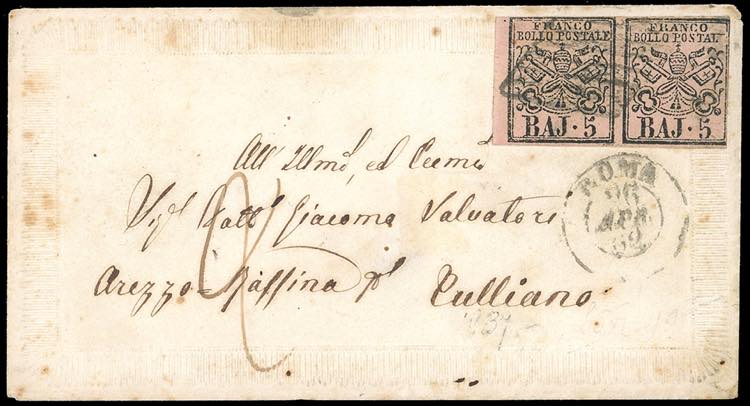 FRANCO
BOLLO POSTALE
BAJ. 5
FRANCO
BOLLO POSTAL
BAJ. 5
ROMA
26
APR
62
All' Illmo, ed Eccmo
Sigr Dottr Giacomo Salvatori
Arezzo = Rassina pr Talliano